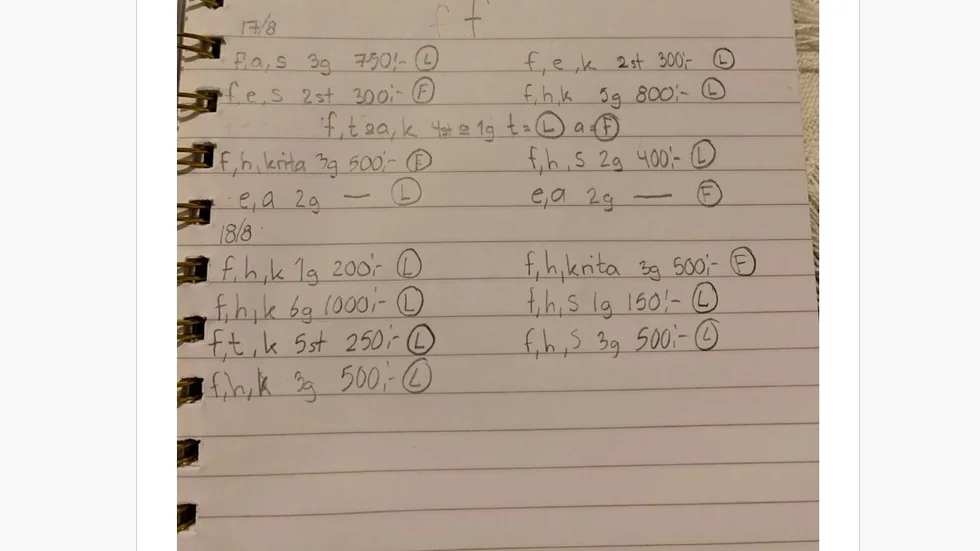 f f
17/8
f,a,s 3g 750:- (L) f,e,k 2st 300:- (L)
f,e,s 2st 300:- (F) f,h,k 5g 800:- (L)
f,t≈a,k 4st≈1g t=(L) a=(F)
f,h,krita 3g 500:- (F) f,h,s 2g 400:- (L)
e,a 2g — (L) e,a 2g — (F)
18/8
f,h,k 1g 200:- (L) f,h,krita 3g 500:- (F)
f,h,k 6g 1000:- (L) f,h,s 1g 150:- (L)
f,t,k 5st 250:- (L) f,h,s 3g 500:- (L)
f,h,k 3g 500:- (L)